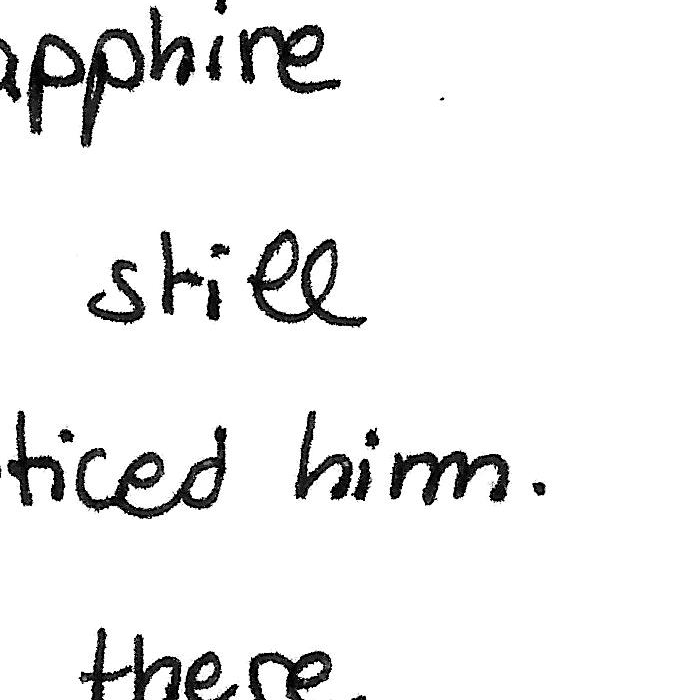 apphire
still
ticed him.
there